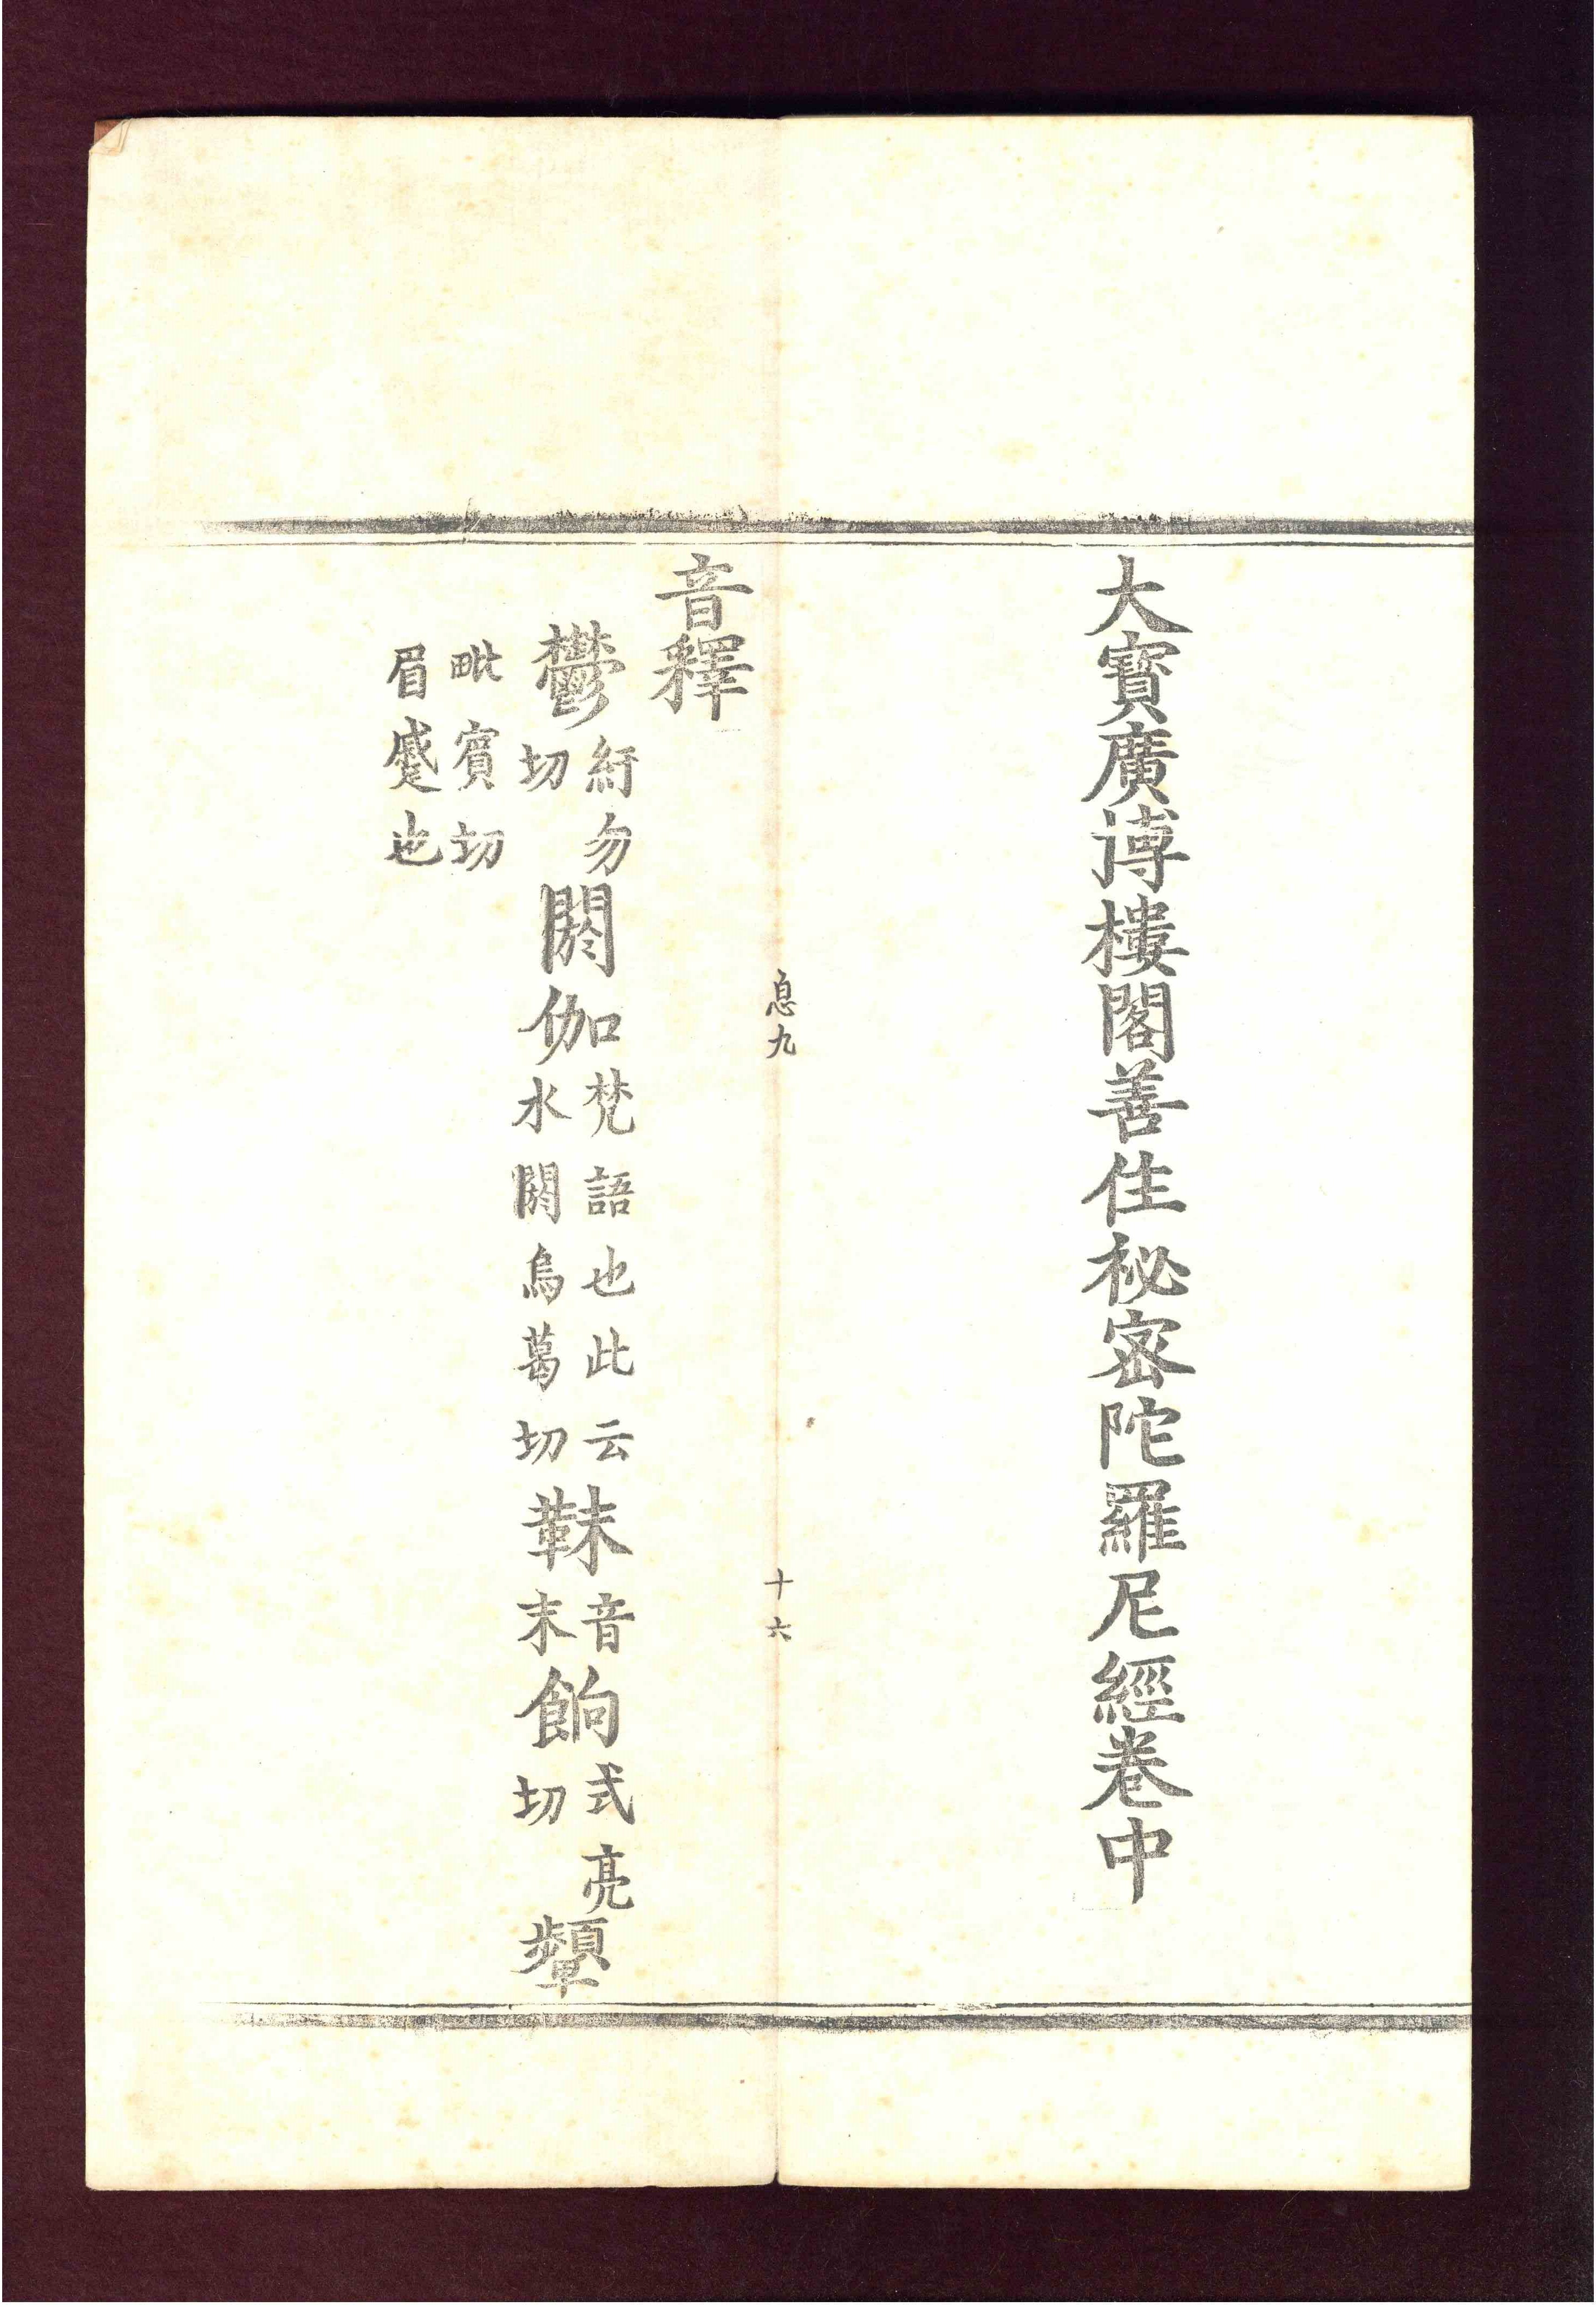 大寶廣博樓閣善住秘密陀羅尼經卷中
息九
十六
音釋
鬱紆勿切閼伽梵語也此云水閼烏葛切靺音末餉式亮切顰
毗賓切眉蹙也